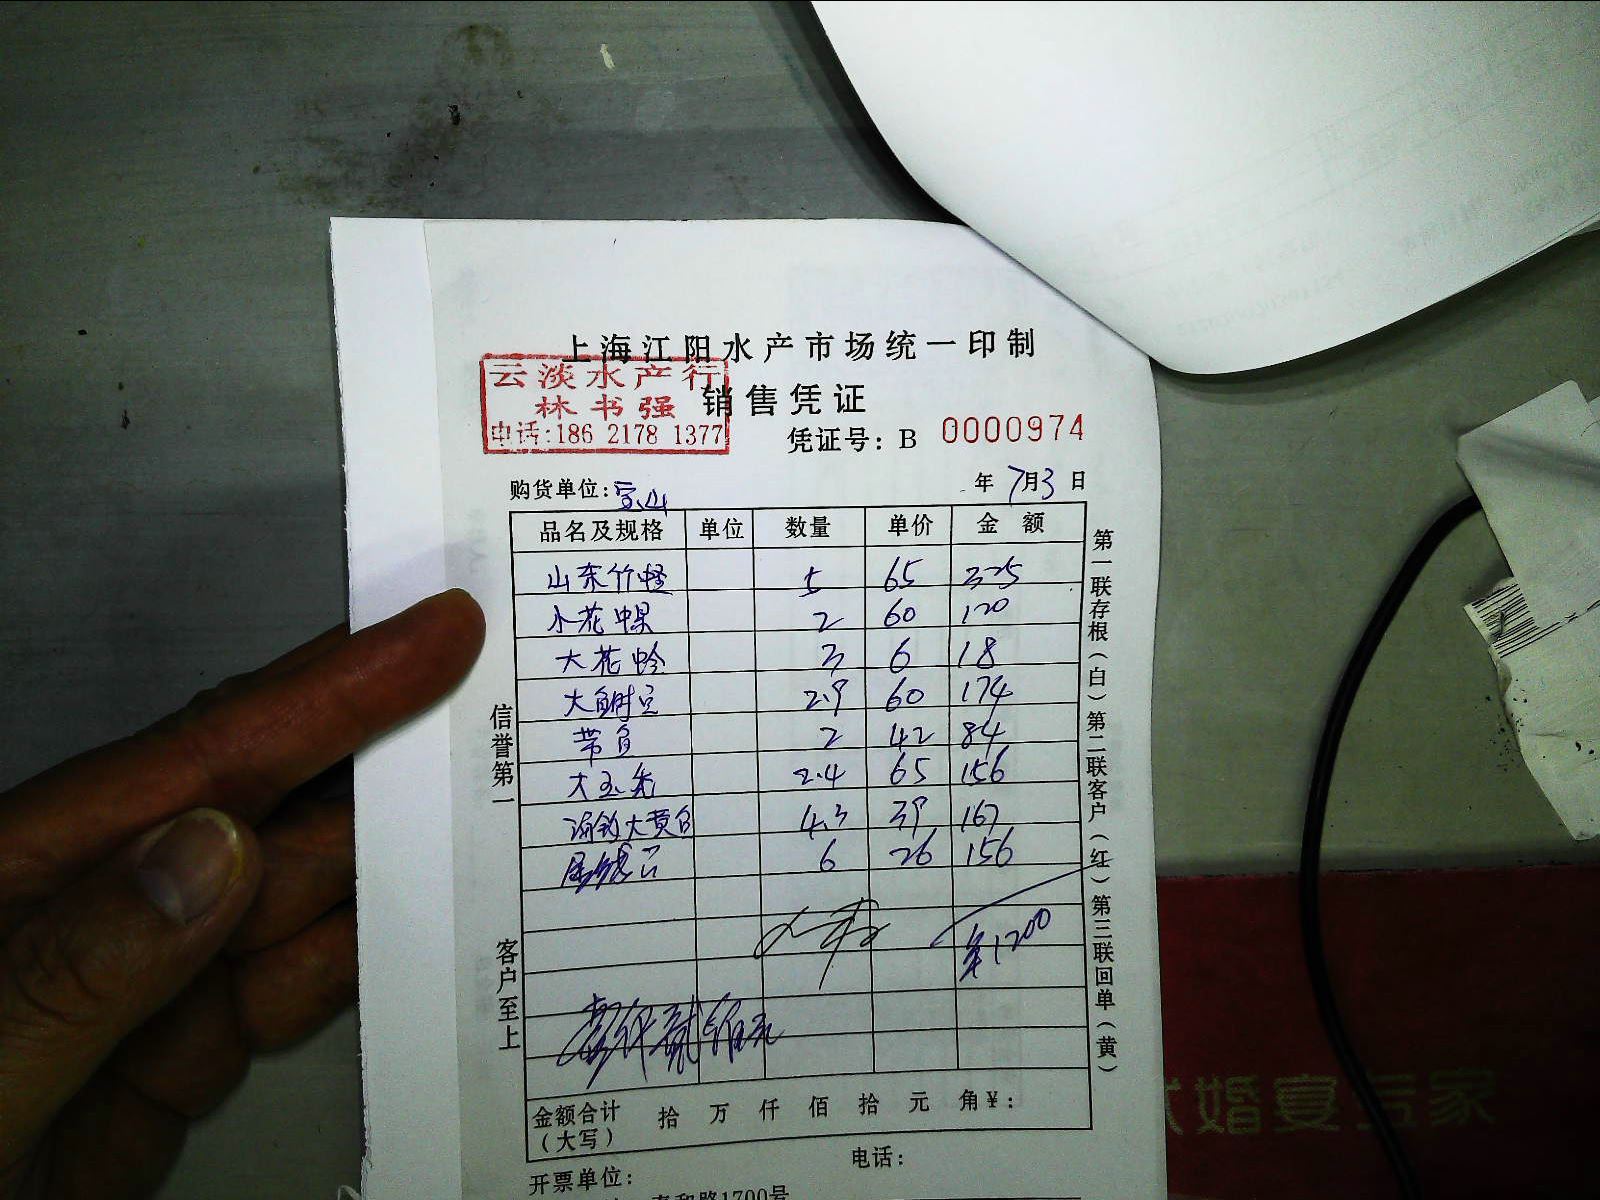 上海江阳水产市场统一印制
云淡水产行
林书强
电话:186 2178 1377
销售凭证
凭证号: B 0000974
购货单位:宝山 年7月3日
品名及规格 单位 数量 单价 金额
山东竹蛏 5 65 325
小花 2 60 120
大花蛤 3 6 18
大 2.9 60 174
带鱼 2 42 84
大玉秃 2.4 65 156
海钓大黄鱼 4.3 39 167
6 26 156
¥1200
金额合计 拾 万 仟 佰 拾 元 角¥:
(大写)
开票单位: 电话:
泰和路1700号
信誉第一
客户至上
第一联存根(白)第二联客户(红)第三联回单(黄)
式婚宴专家